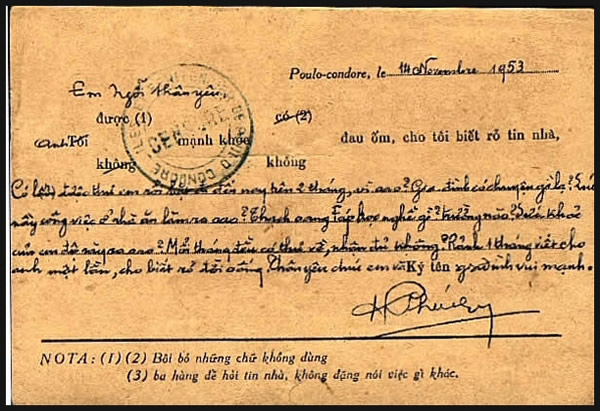 Poulo-condore, le 14 Novembre 1953
Em Ngôi thân yêu
được (1) có (2)
Anh Tôi mạnh khỏe đau ốm, cho tôi biết rõ tin nhà,
không không
được thư em rồi đến nay trên 2 tháng, vì sao? Gia đình có chuyện gì lạ? Lúc
nầy công việc ở nhà ăn làm ra sao? học nghề gì? trường nào? Sức khỏe
của em độ này ra sao? Mỗi tháng đều có thư về, nhận đủ không? Rảnh 1 tháng viết cho
anh một lần, cho biết rõ đời sống. Thân yêu chúc em và Ký tên gia đình vui mạnh.
NOTA: (1) (2) Bôi bỏ những chữ không dùng
(3) ba hàng để hỏi tin nhà, không đặng nói việc gì khác.